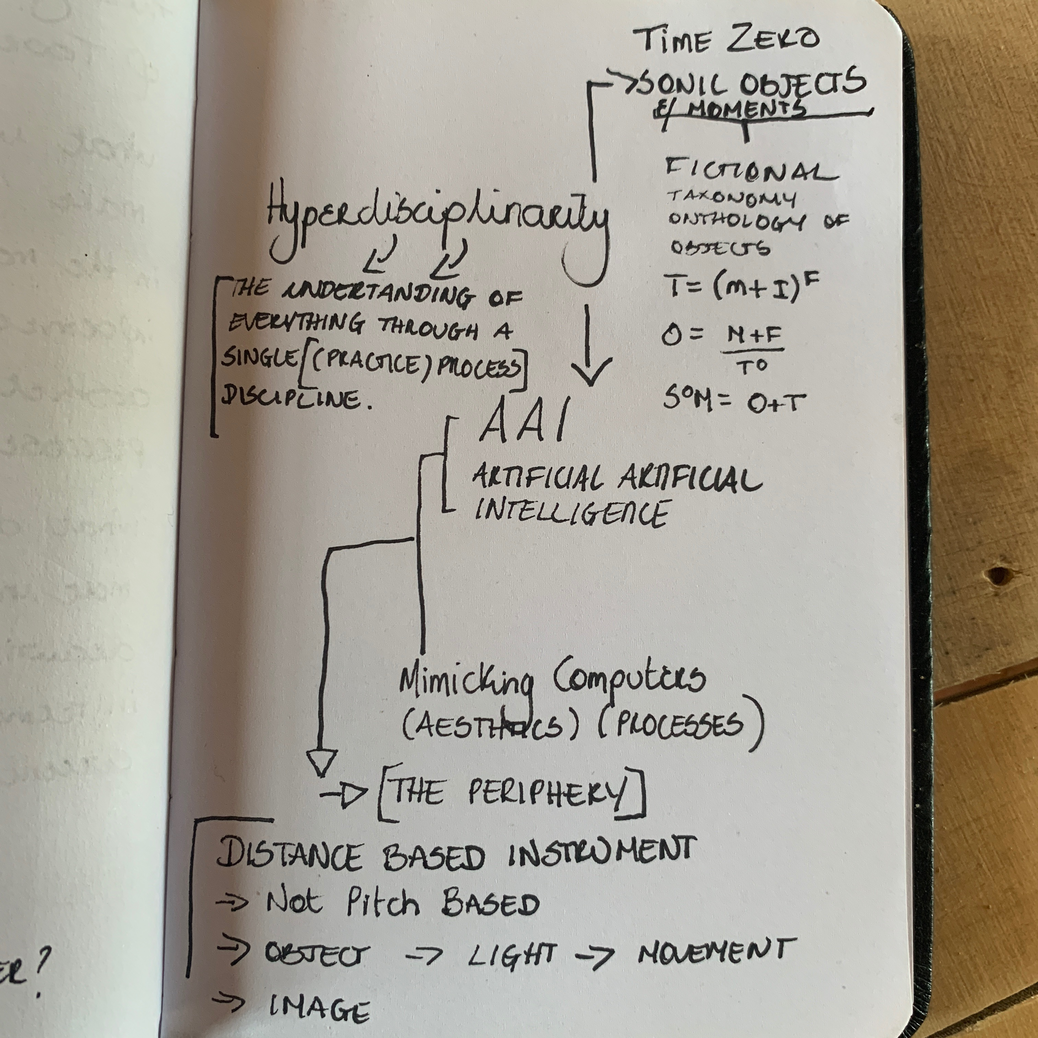 TIME ZERO
SONIC OBJECTS
& MOMENTS
FICTIONAL
TAXONOMY
ONTHOLOGY OF
OBJECTS
T = (m + I)^F
O = N+F / T°
S°M = O+T
Hyperdisciplinarity
THE UNDERTANDING OF
EVERYTHING THROUGH A
SINGLE [(PRACTICE) PROCESS]
DISCIPLINE.
AAI
ARTIFICIAL ARTIFICIAL
INTELLIGENCE
Mimicking Computers
(AESTHETICS) (PROCESSES)
→ [THE PERIPHERY]
DISTANCE BASED INSTRUMENT
→ Not Pitch BASED
→ OBJECT → LIGHT → MOVEMENT
→ IMAGE
ER?